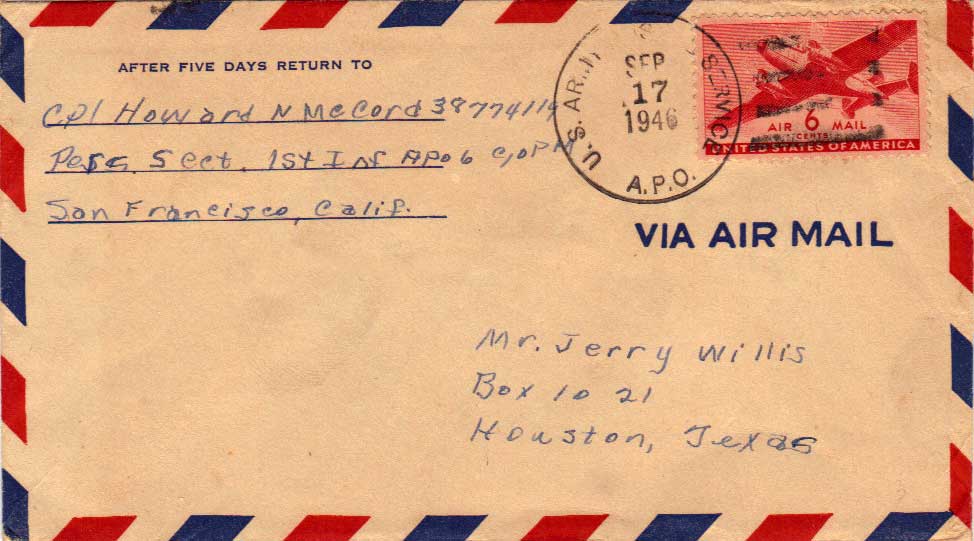 AFTER FIVE DAYS RETURN TO
Cpl Howard N McCord 38774114
Pers. Sect. 1st Inf APO 6 c/o PM
San Francisco, Calif.
U.S. ARMY SERVICE
SEP
17
1946
A.P.O.
AIR 6 MAIL
CENTS
UNITED STATES OF AMERICA
VIA AIR MAIL
Mr. Jerry Willis
Box 10 21
Houston, Texas